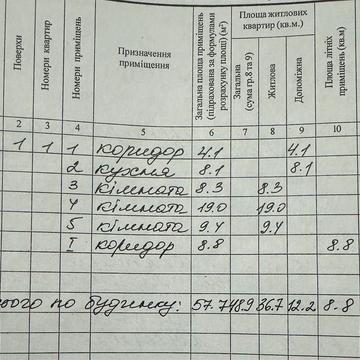 Поверхи
Номери квартир
Номери приміщень
Призначення приміщення
Загальна площа приміщень (підрахована за формулами розрахунку площі) (м²)
Площа житлових квартир (кв.м.)
Загальна (сума гр.8 та 9)
Житлова
Допоміжна
Площа літніх приміщень (кв.м)
2 3 4 5 6 7 8 9 10
1 1 1 коридор 4.1 4.1
2 кухня 8.1 8.1
3 кімната 8.3 8.3
4 кімната 19.0 19.0
5 кімната 9.4 9.4
I коридор 8.8 8.8
ього по будинку: 57.7 48.9 36.7 12.2 8.8